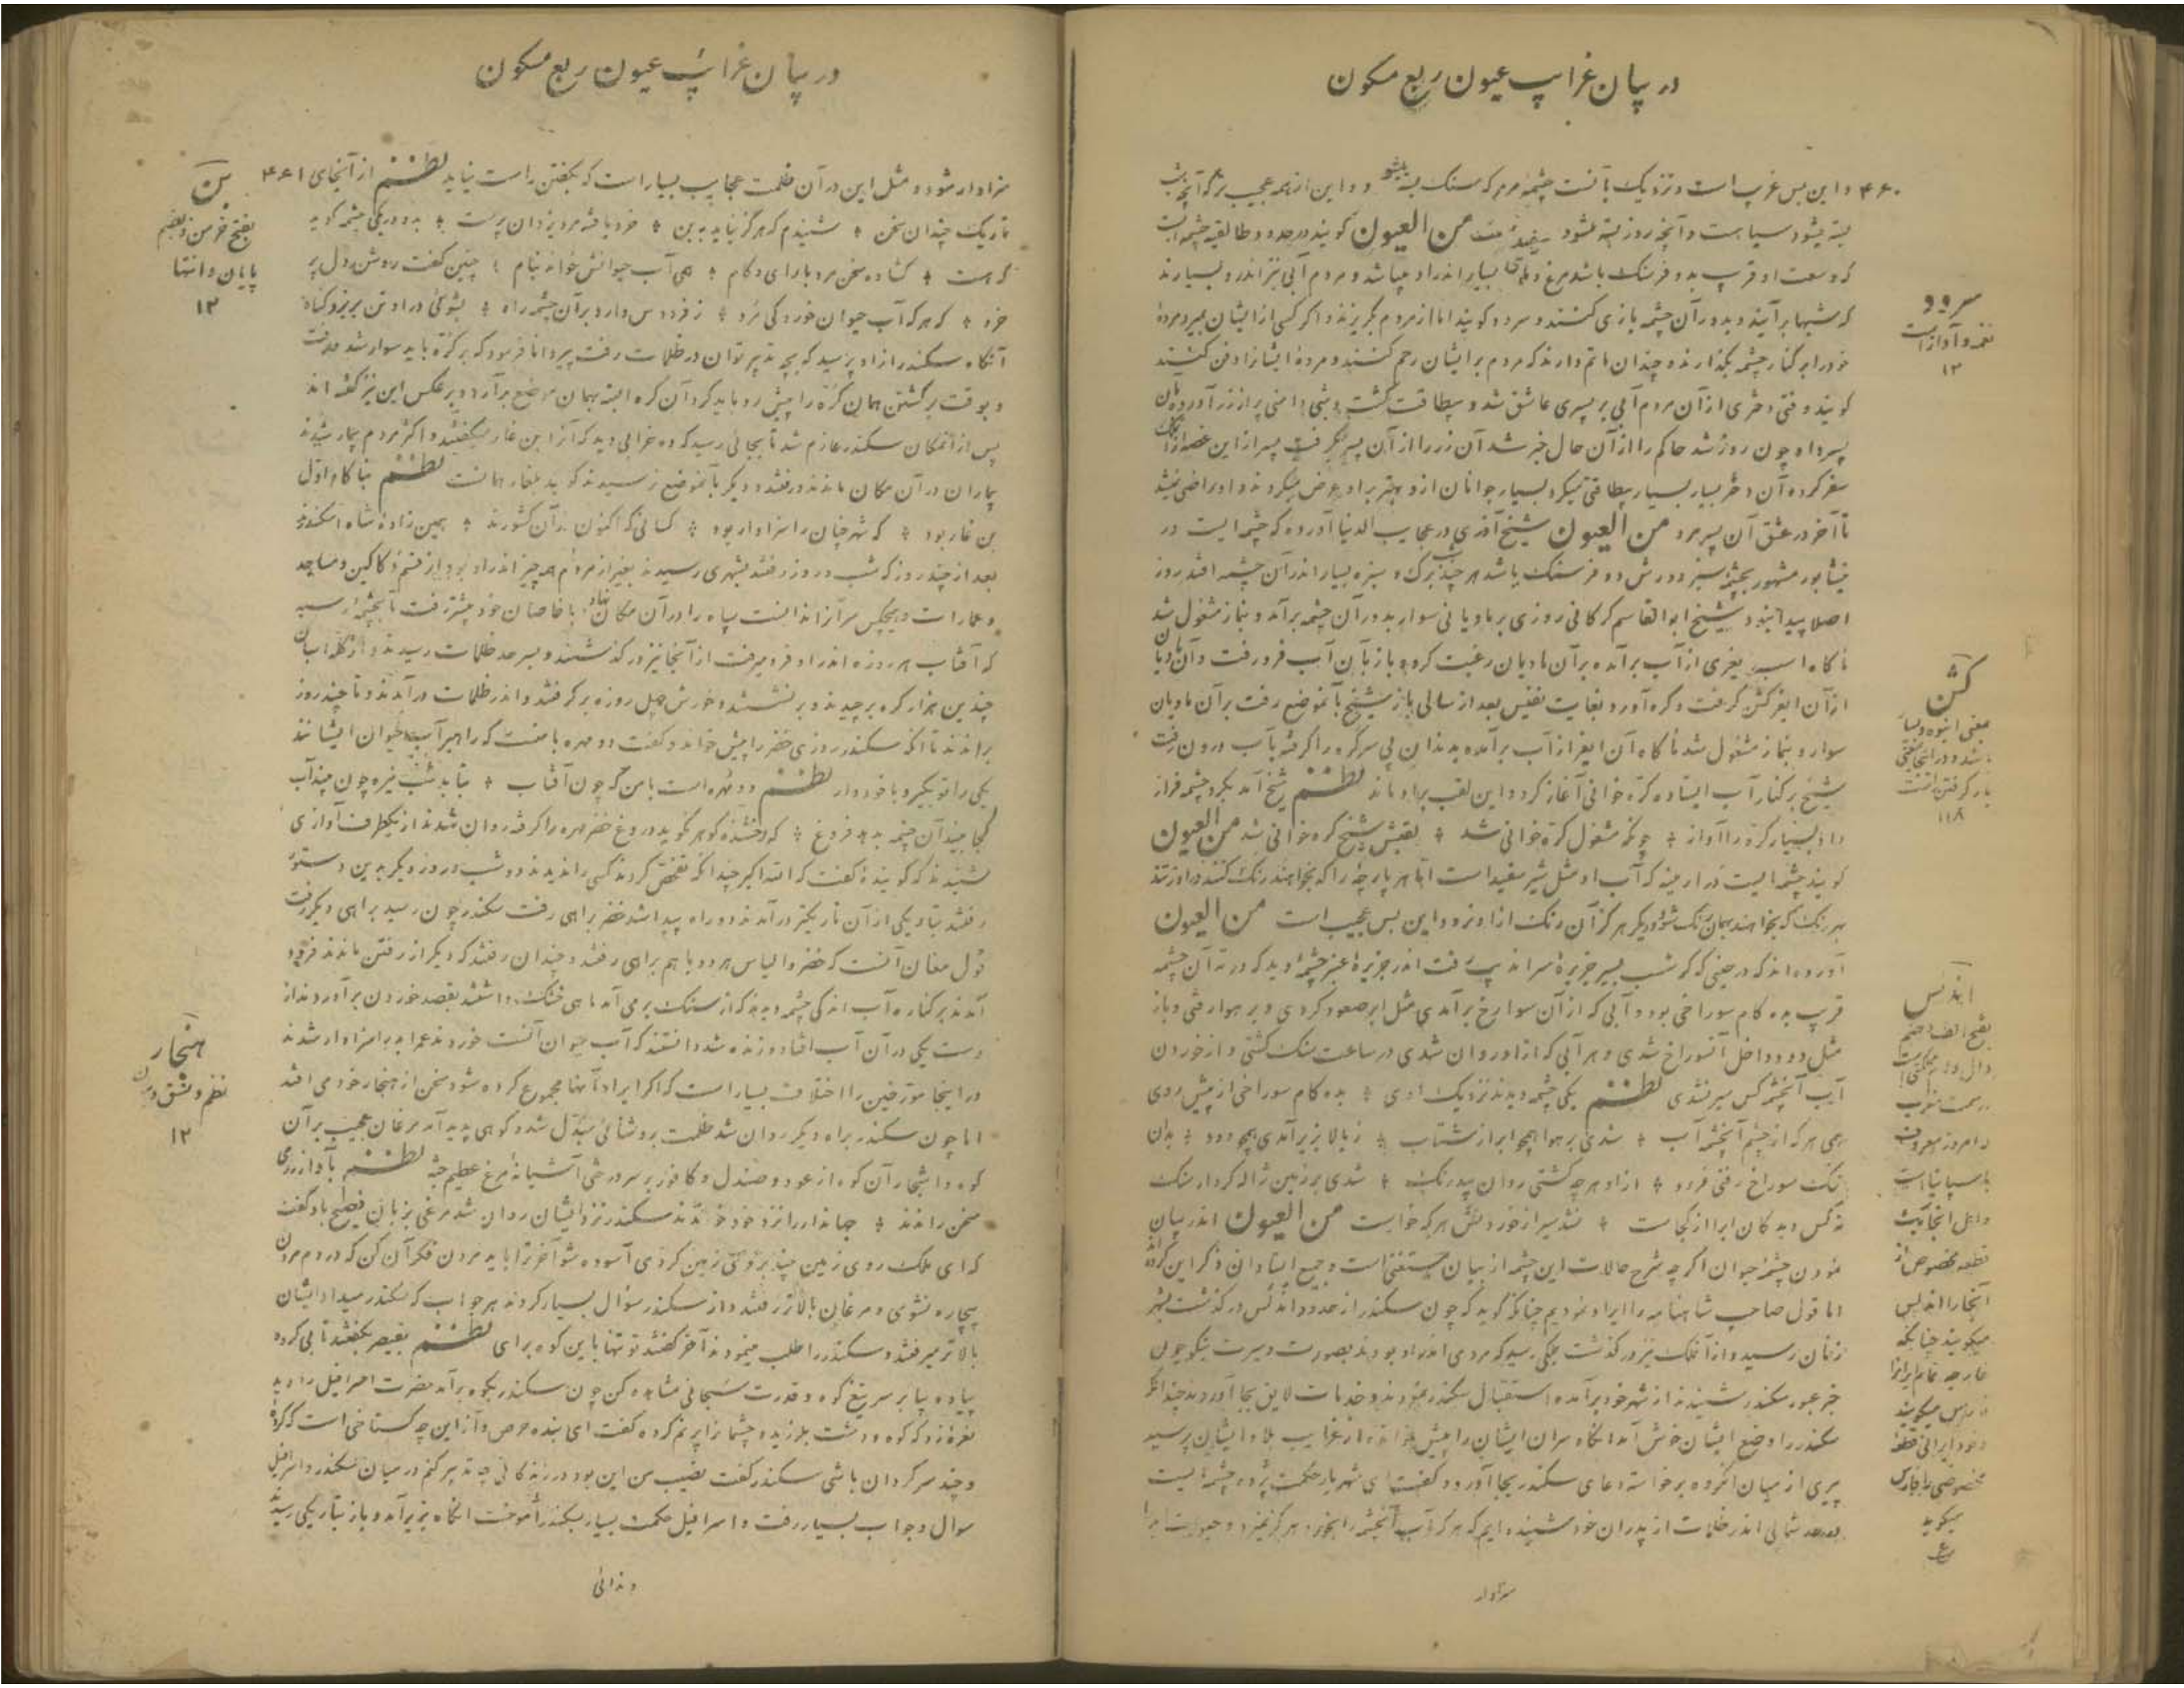 در بیان غرایب عیون ربع مسکون
۴۶۰ و این بس غریب است و نزدیک بآنست چشمهٔ مرمر که سنک بسته میشود و این از همه عجیب تر که آنچه بشب
بسته میشود سیاهست و آنچه روز بسته میشود سفید است من العیون کویند در حدود چشمه ایست
که وسعت او قریب بدو فرسنک باشد مرغ و ماهی بسیار اندر او میباشد و مردم آبی نیز اندرو بسیارند
که شبها برآیند و بدور آن چشمه بازی کنند و سرود کویند اما از مردم بگریزند و اگر کسی از ایشان بمیرد مردهٔ
خود را بر کنار چشمه بگذارند و چندان ماتم دارند که مردم بر ایشان رحم کنند و مردهٔ ایشانرا دفن کنند
کویند وقتی دختری از آن مردم آبی بر پسری عاشق شد و بیطاقت کشت و شبی دامنی پر از زر آورده بآن
پسر داد چون روز شد حاکم را از آن حال خبر شد آن زر را از آن پسر بگرفت پسر از این غصه از آنجا
سفر کرده آن دختر بسیار بسیار بیطاقتی میکرد بسیار جوانان ازو بهتر براو عرض میکردند و او راضی نمیشد
تا آخر در عشق آن پسر مرد من العیون شیخ آذری در عجایب الدنیا آورده که چشمه ایست در
نیشابور مشهور بچشمه سبز دورش دو فرسنک باشد هر چند برک و سبزه بسیار اندر آن چشمه افتد روز
اصلا پیدا نبود شیخ ابوالقاسم کرکانی روزی بر مادیانی سوار بدور آن چشمه برآمد و بنماز مشغول شد
ناکاه اسب بغری از آب برآمده بر آن مادیان رغبت کرد و باز بآن آب فرو رفت و آن مادیان
از آن ابغر کشن کرفت و کره آورد بغایت نفیس بعد از سالی باز شیخ بآنموضع رفت بر آن مادیان
سوار و بنماز مشغول شد ناکاه آن ابغر از آب برآمده بدندان پی سر کره را کرفته بآب درون رفت
شیخ بر کنار آب ایستاده کره خوانی آغاز کرد و این لقب براو ماند نظم شیخ آمد بکرد چشمه فراز
داد بسیار کره را آواز ❖ چونکه مشغول کره خوانی شد ❖ لقبش شیخ کره خوانی شد من العیون
کویند چشمه ایست در ارمینه که آب او مثل شیر سفید است اما هر پارچه را که بخواهند رنک کنند در او زنند
بهر رنک که بخواهند بهمان رنک شود و دیکر هرکز آن رنک از او نرود و این بس عجیب است من العیون
آورده اند که در حینی که کوشب بسیر جزیرهٔ سراندیب رفت اندر جزیرهٔ عنبر چشمهٔ دید که در ته آن چشمه
قریب بده کام سوراخی بود و آبی که از آن سوراخ برآمدی مثل ابر صعود کردی و بر هوا رفتی و باز
مثل دود داخل آنسوراخ شدی و هر آبی که از او روان شدی در ساعت سنک کشتی و از خوردن
آب آنچشمه کس سیر نشدی نظم یکی چشمه دیدند نزدیک اوی ❖ بده کام سوراخی از پیش روی
همی هر که از چشم آنچشمه آب ❖ شدی بر هوا همچو ابر از شتاب ❖ ز بالا بزیر آمدی همچو دود ❖ بدان
تنک سوراخ رفتی فرود ❖ از او هر چه کشتی روان بیدرنک ❖ شدی بر زمین ژاله کردار سنک
نه کس دید کان ابر از کجاست ❖ نشد سیر از خوردنش هر که خواست من العیون اندر بیان
نمودن چشمهٔ حیوان اگر چه شرح حالات این چشمه از بیان مستغنی است و جمیع استادان ذکر این کرده اند
اما قول صاحب شاهنامه را ایراد نمودیم چنانکه کوید که چون سکندر از حدود اندلس در کذشت بشهر
زنان رسید و از آنملک نیز در کذشت بملکی رسید که مردمی اندر او بودند بصورت و سیرت نیکو چون
خبر عبور سکندر شنیدند از شهر خود برآمده استقبال سکندر نمودند و خدمات لایق بجا آوردند چندانکه
سکندر را وضع ایشان خوش آمد آنکاه سران ایشان را پیش خوانده از غرایب بلاد ایشان پرسید
پیری از میان آنکروه برخواسته دعای سکندر بجا آورد و کفت ای شهریار حکمت پژوه چشمه ایست
بحد شمالی اندر ظلمات از پدران خود شنیده ایم که هر که آب آنچشمه را بخورد هرکز نمیرد و حیوت ابدرا
سزاوار
سرود
نغمه و آواز است
۱۲
کشن
بمعنی انبوه و بسیار
باشد و در اینجا بمعنی
بار کرفتن است
۱۱۸
اندلس
بفتح الف و ضم
دال و مملکتی است
در سمت مغرب
و امروز معروف
باسپانیا است
و اهل آنجا یک
قطعه مخصوص از
آنجا را اندلس
میکویند چنانکه
خارجه تمام ایران را
فارس میکویند
و خود ایرانی قطعه
مخصوصی را فارس
میکوید
در بیان غرائب عیون ربع مسکون
سزاوار شود و مثل این در آن ظلمت عجایب بسیار است که بکفتن راست نیاید نظم از آنجای ۴۶۱
تاریک چندان سخن ❖ شنیدم که هرکز نیاید به بن ❖ خرد یافته مرد یزدان پرست ❖ بدو در یکی چشمه کوید
که هست ❖ کشاده سخن مرد با رای و کام ❖ همی آب حیوانش خواند بنام ❖ چنین کفت روشن دل پر
خرد ❖ که هر که آب حیوان خورد کی مرد ❖ ز فردوس دارد بر آن چشمه راه ❖ بشوئی در او تن بریزد کناه
آنکاه سکندر از او پرسید که بچه تدبیر توان در ظلمات رفت پیر دانا فرمود که بر کره باید سوار شد و رفت
و بوقت برکشتن همان کره را پیش رو باید کرد آن کره البته بهمان موضع برآرد و بر عکس این نیز کفته اند
پس از آنمکان سکندر عازم شد تا بجائی رسید که ده خرابی دید که آنرا بن غار میکفتند و اکثر مردم بیمار شدند
بیماران در آن مکان ماندند و رفتند و دیکر بآنموضع نرسیدند کوید بلغار همانست نظم بنا کام اول
بن غار بود ❖ که شهر چنان را سزاوار بود ❖ کسانی که اکنون در آن کشورند ❖ بهین زادهٔ شاه اسکندرند
بعد از چند روز که شب و روز رفتند بشهری رسیدند بغیر از مردم همه چیز اندر او بود از قسم دکاکین و مساجد
و عمارات و هیچکس سر آنرا ندانست سپاه را در آن مکان نهاد با خاصان خود پیشتر رفت تا بچشمهٔ رسید
که آفتاب هر روزه اندر او فرو میرفت از آنجا نیز در کذشتند و بسرحد ظلمات رسیدند و از کلهٔ اسبان
چندین هزار کره برچیدند و برنشستند و خورش چهل روزه بر کرفتند و اندر ظلمات درآمدند و تا چند روز
براندند تا آنکه سکندر روزی خضر را پیش خواند و کفت دو مهره با منست که راهبر آب حیوان ایشانند
یکی را تو بکیر و با خود دار نظم دو مهره است با من که چون آفتاب ❖ بتابد شب تیره چون بیند آب
کجا بیند آن چشمه بدهد فروغ ❖ که رخشنده کوهر نکوید دروغ خضر مهره را کرفته روان شدند از یکطرف آوازی
شنیدند که کویندهٔ کفت که الله اکبر چندانکه تفحص کردند کسی را ندیدند و دو شب و روز دیکر بدین دستور
رفتند بتاریکی از آن تاریکتر درآمدند دو راه پیدا شد خضر براهی رفت سکندر چون رسید براهی دیکر رفت
قول مغان آنست که خضر و الیاس هر دو با هم براهی رفتند و چندان رفتند که دیکر از رفتن ماندند فرود
آمدند بر کنارهٔ آب اندکی چشمه دیدند که از سنک برمی آمد ماهی خشک داشتند بقصد خوردن برآوردند از
دست یکی در آن آب افتاد و زنده شد دانستند که آب حیوان آنست خوردند عمر ابد را سزاوار شدند
در اینجا مورخین را اختلاف بسیار است که اکر ایراد آنها مجموع کرده شود سخن از هنجار خود می افتد
اما چون سکندر براه دیکر روان شد ظلمت بروشنائی مبدل شد و کوهی پدید آمد مرغان عجیب بر آن
کوه و اشجار آن کوه از عود و صندل و کافور بر سر درختی آشیانهٔ مرغ عظیم جثه نظم بآواز رومی
سخن راندند ❖ جهاندار را نزد خود خواندند سکندر نزد ایشان روان شد مرغی بزبان فصیح باو کفت
که ای ملک روی زمین چند بروی زمین کردی آسوده شو آخر ترا باید مردن فکر آن کن که در دم مردن
بیچاره نشوی و مرغان بالاتر رفتند و از سکندر سؤال بسیار کردند هر جواب که سکندر میداد ایشان
بالاتر میرفتند و سکندر را طلب مینمودند آخر کفتند تو تنها باین کوه برای نظم بقیصر بکفتند تا بی کروه
پیاده بیا بر سر تیغ کوه و قدرت سبحانی مشاهده کن چون سکندر بکوه برآمد حضرت اسرافیل را دید
نعره زد که کوه و دشت بلرزید و چشمانرا پر نم کرده کفت ای بندهٔ حرص و آز این چه کستاخی است که کردهٔ
و چند سرکردان باشی سکندر کفت نصیب من این بود در زندکانی چه تدبیر کنم در میان سکندر و اسرافیل
سوال و جواب بسیار رفت و اسرافیل حکمت بسیار بسکندر آموخت آنکاه بزیر آمد و باز بتاریکی رسید
و ندائی
بن
بفتح خرمن و بضم
پایان و انتها
۱۲
هنجار
نظم و نسق
۱۲